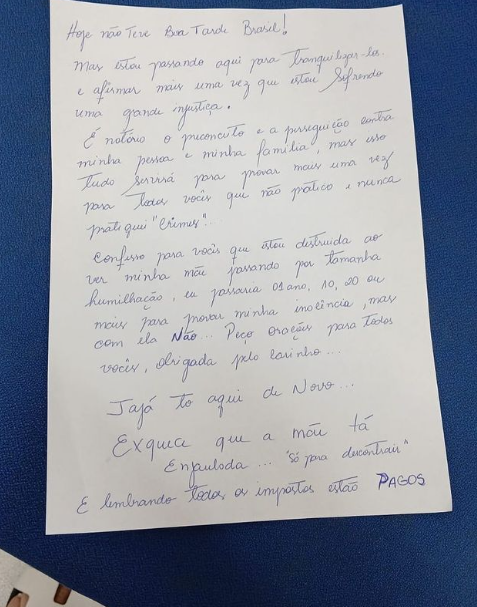 Hoje não Teve Boa Tarde Brasil!
Mas estou passando aqui para Tranquilizar-los.
e afirmar mais uma vez que estou Sofrendo
uma grande injustiça.
É notório o preconceito e a perseguição contra
minha pessoa e minha família, mas isso
Tudo Servirá para provar mais uma vez
para Todos vocês que não pratico e nunca
pratiquei "Crimes"...
Confesso para vocês que estou destruida ao
ver minha mãe passando por tamanha
humilhação, eu passaria 01 ano, 10, 20 ou
mais para provar minha inocência, mas
com ela Não... Peço orações para todos
vocês, obrigada pelo carinho...
Jajá to aqui de Novo...
Exquece que a mãe tá
Enjaulada... "só para descontrair"
E lembrando todos os impostos estão PAGOS